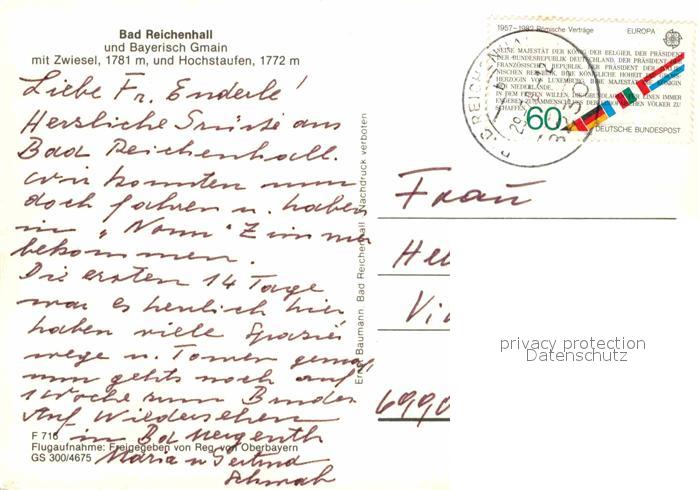 Bad Reichenhall
und Bayerisch Gmain
mit Zwiesel, 1781 m, und Hochstaufen, 1772 m
Liebe Fr. Enderle
Herzliche Grüsse aus
Bad Reichenhall.
Wir konnten nun
doch fahren u. haben
in „Nonn" Zimmer
bekommen.
Die ersten 14 Tage
war es herrlich hier
haben viele Spazier
wege u. Touren gemacht
nun gehts noch auf
1 Woche zum Bruder
Auf Wiedersehen
in Bd Mergenth
Maria u Gertrud
Schwab
F 716
Flugaufnahme: Freigegeben von Reg. von Oberbayern
GS 300/4675
Ernst Baumann, Bad Reichenhall Nachdruck verboten
1957–1982 Römische Verträge
EUROPA
SEINE MAJESTÄT DER KÖNIG DER BELGIER, DER PRÄSIDENT
DER BUNDESREPUBLIK DEUTSCHLAND, DER PRÄSIDENT DER
FRANZÖSISCHEN REPUBLIK, DER PRÄSIDENT DER ITALIE-
NISCHEN REPUBLIK, IHRE KÖNIGLICHE HOHEIT DIE GROSS-
HERZOGIN VON LUXEMBURG, IHRE MAJESTÄT DIE KÖNIGIN
DER NIEDERLANDE,
60
DEUTSCHE BUNDESPOST
Frau
He
Vi
6990
privacy protection
Datenschutz